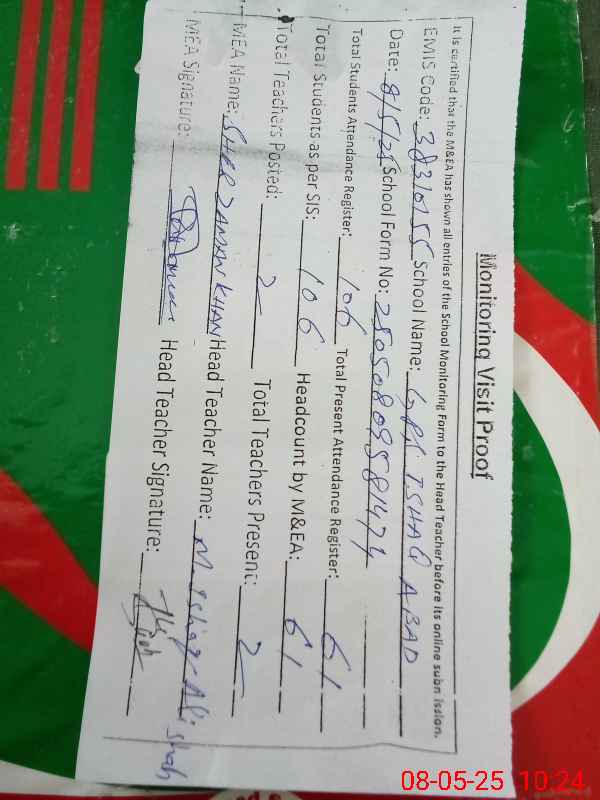 Monitoring Visit Proof
It is certified that the M&EA has shown all entries of the School Monitoring Form to the Head Teacher before its online subn ission.
EMIS Code: 38310155 School Name: GPS ISHAQ ABAD
Date: 8/5/25 School Form No: 25050809581474
Total Students Attendance Register: 106 Total Present Attendance Register: 61
Total Students as per SIS: 106 Headcount by M&EA: 61
Total Teachers Posted: 2 Total Teachers Present: 2
MEA Name: SHER ZAMAN KHAN Head Teacher Name: M. Ishaq Ali Shah
MEA Signature: Head Teacher Signature:
08-05-25 10:24